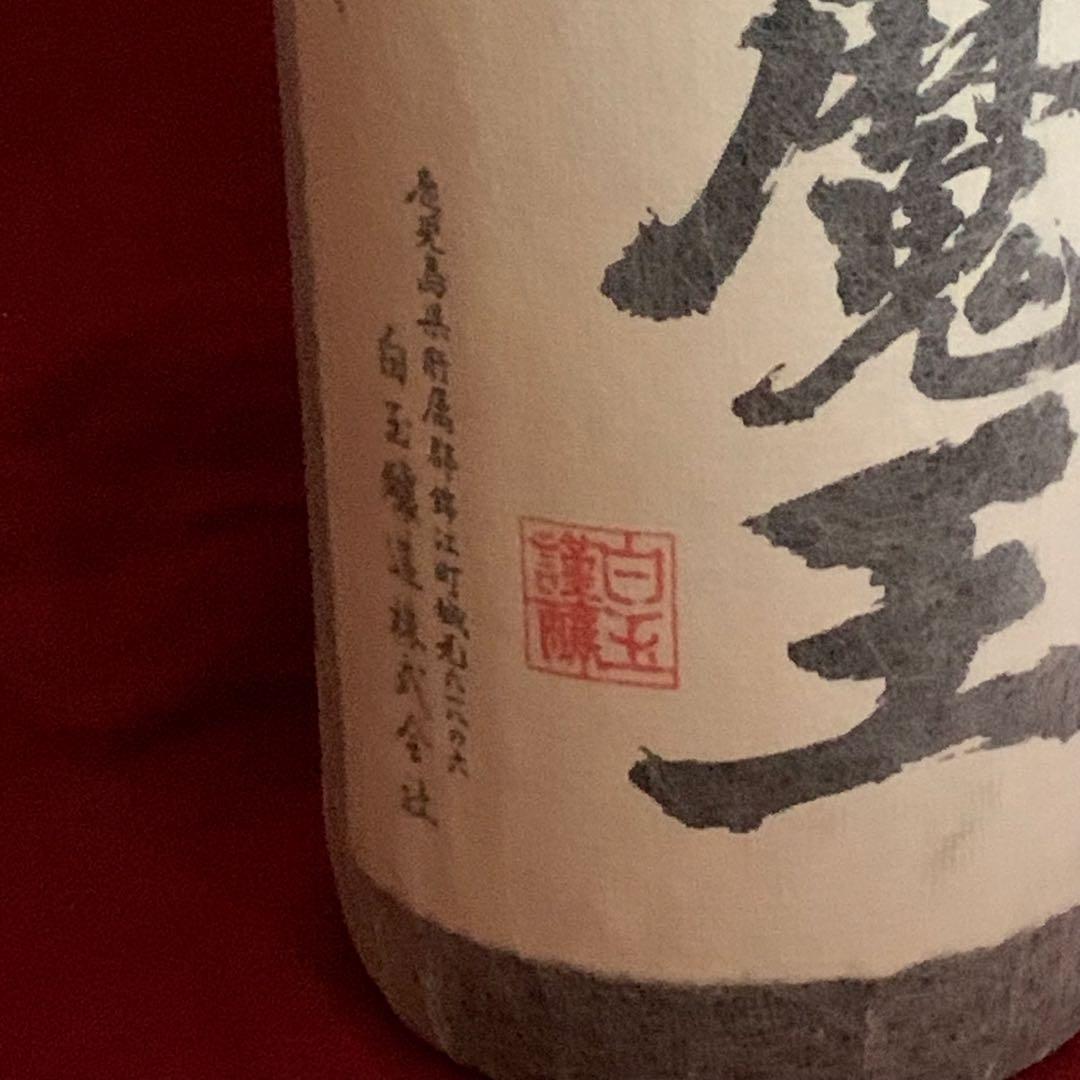 魔王
白玉
謹醸
鹿児島県肝属郡錦江町城元六二一八六
白玉醸造株式会社